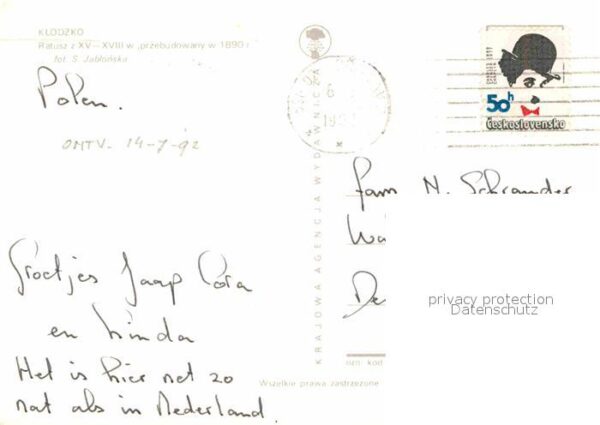 KŁODZKO
Ratusz z XV—XVIII w., przebudowany w 1890 r.
fot. S. Jabłońska
Polen.
OMTV- 14-7-'92
KRAJOWA AGENCJA WYDAWNICZA
50h
Československo
fam N. Schrander
Wa
De
privacy protection
Datenschutz
Groetjes Jaap Cora
en Linda
Het is hier net zo
nat als in Nederland.
Wszelkie prawa zastrzeżone